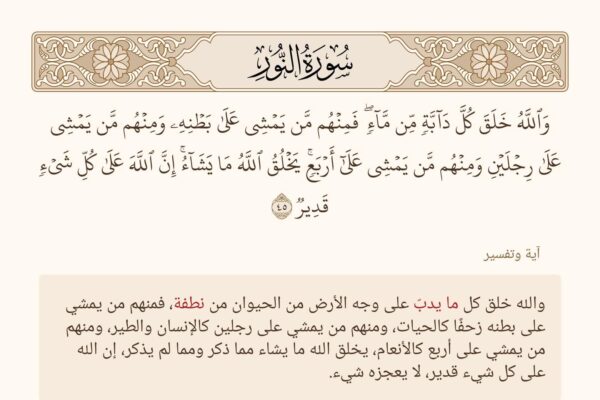 سُورَةُ النُّورِ
وَٱللَّهُ خَلَقَ كُلَّ دَآبَّةٖ مِّن مَّآءٖۖ فَمِنۡهُم مَّن يَمۡشِي عَلَىٰ بَطۡنِهِۦ وَمِنۡهُم مَّن يَمۡشِي
عَلَىٰ رِجۡلَيۡنِ وَمِنۡهُم مَّن يَمۡشِي عَلَىٰٓ أَرۡبَعٖۚ يَخۡلُقُ ٱللَّهُ مَا يَشَآءُۚ إِنَّ ٱللَّهَ عَلَىٰ كُلِّ شَيۡءٖ
قَدِيرٞ ٤٥
آية وتفسير
والله خلق كل ما يدبّ على وجه الأرض من الحيوان من نطفة، فمنهم من يمشي
على بطنه زحفًا كالحيات، ومنهم من يمشي على رجلين كالإنسان والطير، ومنهم
من يمشي على أربع كالأنعام، يخلق الله ما يشاء مما ذكر ومما لم يذكر، إن الله
على كل شيء قدير، لا يعجزه شيء.